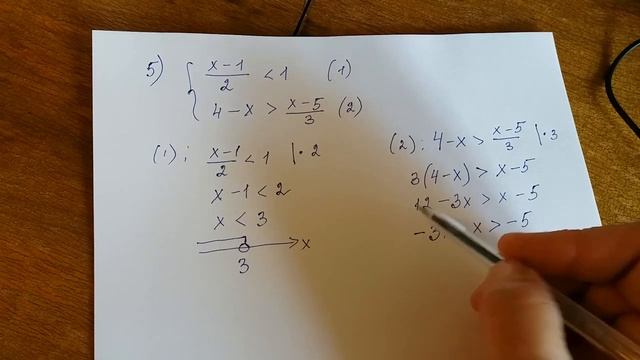 5) { (x-1)/2 < 1 (1)
4-x > (x-5)/3 (2)
(1): (x-1)/2 < 1 |·2
x-1 < 2
x < 3
x
3
(2): 4-x > (x-5)/3 |·3
3(4-x) > x-5
12-3x > x-5
-3 x > -5